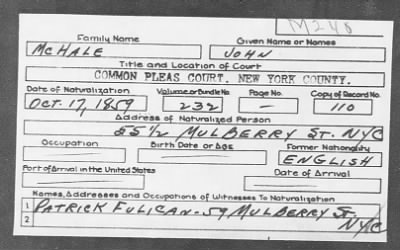 M240
Family Name Given Name or Names
McHALE JOHN
Title and Location of Court
COMMON PLEAS COURT. NEW YORK COUNTY.
Date of Naturalization Volume or Bundle No. Page No. Copy of Record No.
OCT. 17, 1859 232 — 110
Address of Naturalized Person
25 1/2 MULBERRY ST. NYC
Occupation Birth Date or Age Former Nationality
ENGLISH
Port of Arrival in the United States Date of Arrival
Names, Addresses and Occupations of Witnesses To Naturalization
1 PATRICK FULICAN - 59 MULBERRY ST.
2 NYC